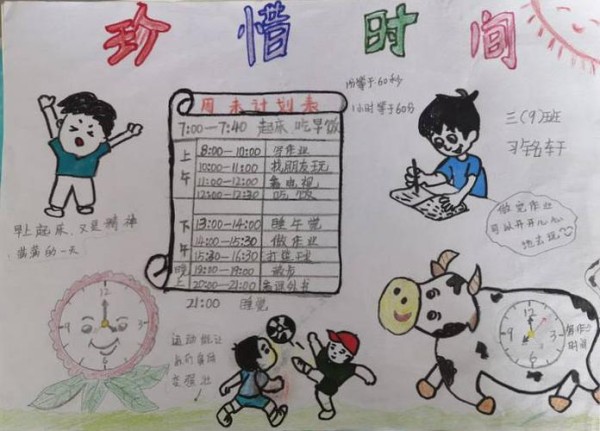 珍惜时间
周末计划表
7:00—7:40 起床 吃早饭
上午
8:00—10:00 写作业
10:00—11:00 找朋友玩
11:00—12:00 看电视
12:00—12:30 吃饭
下午
13:00—14:00 睡午觉
14:00—15:30 做作业
15:30—16:30 打篮球
晚上
19:10—19:00
20:00—21:00 看课外书
21:00 睡觉
分等于60秒
1小时等于60分
三(9)班
早上起床,又是精神
满满的一天
做完作业
可以开开心心
地去玩
运动能让
我们身体
变强壮
12
3
6
9
12
3
6
9